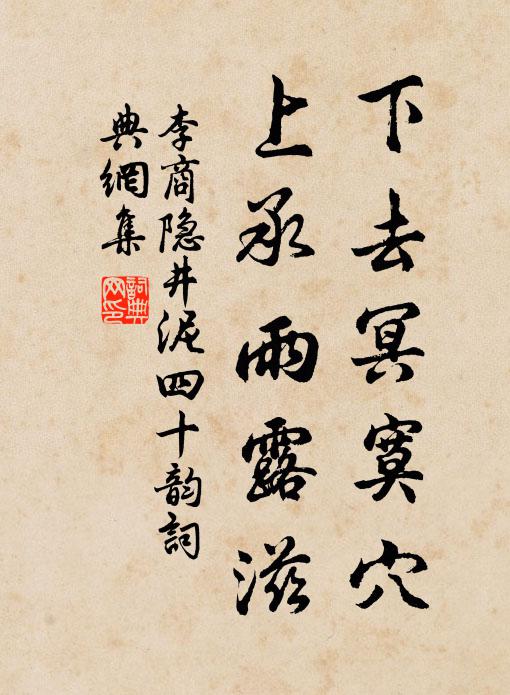 下去冥寞穴
上承雨露滋
李商隐井泥四十韵詞
典網集
詞典
网印